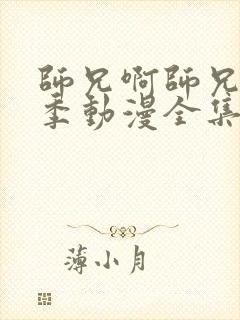 師兄啊師兄
季動漫全集
薄小月